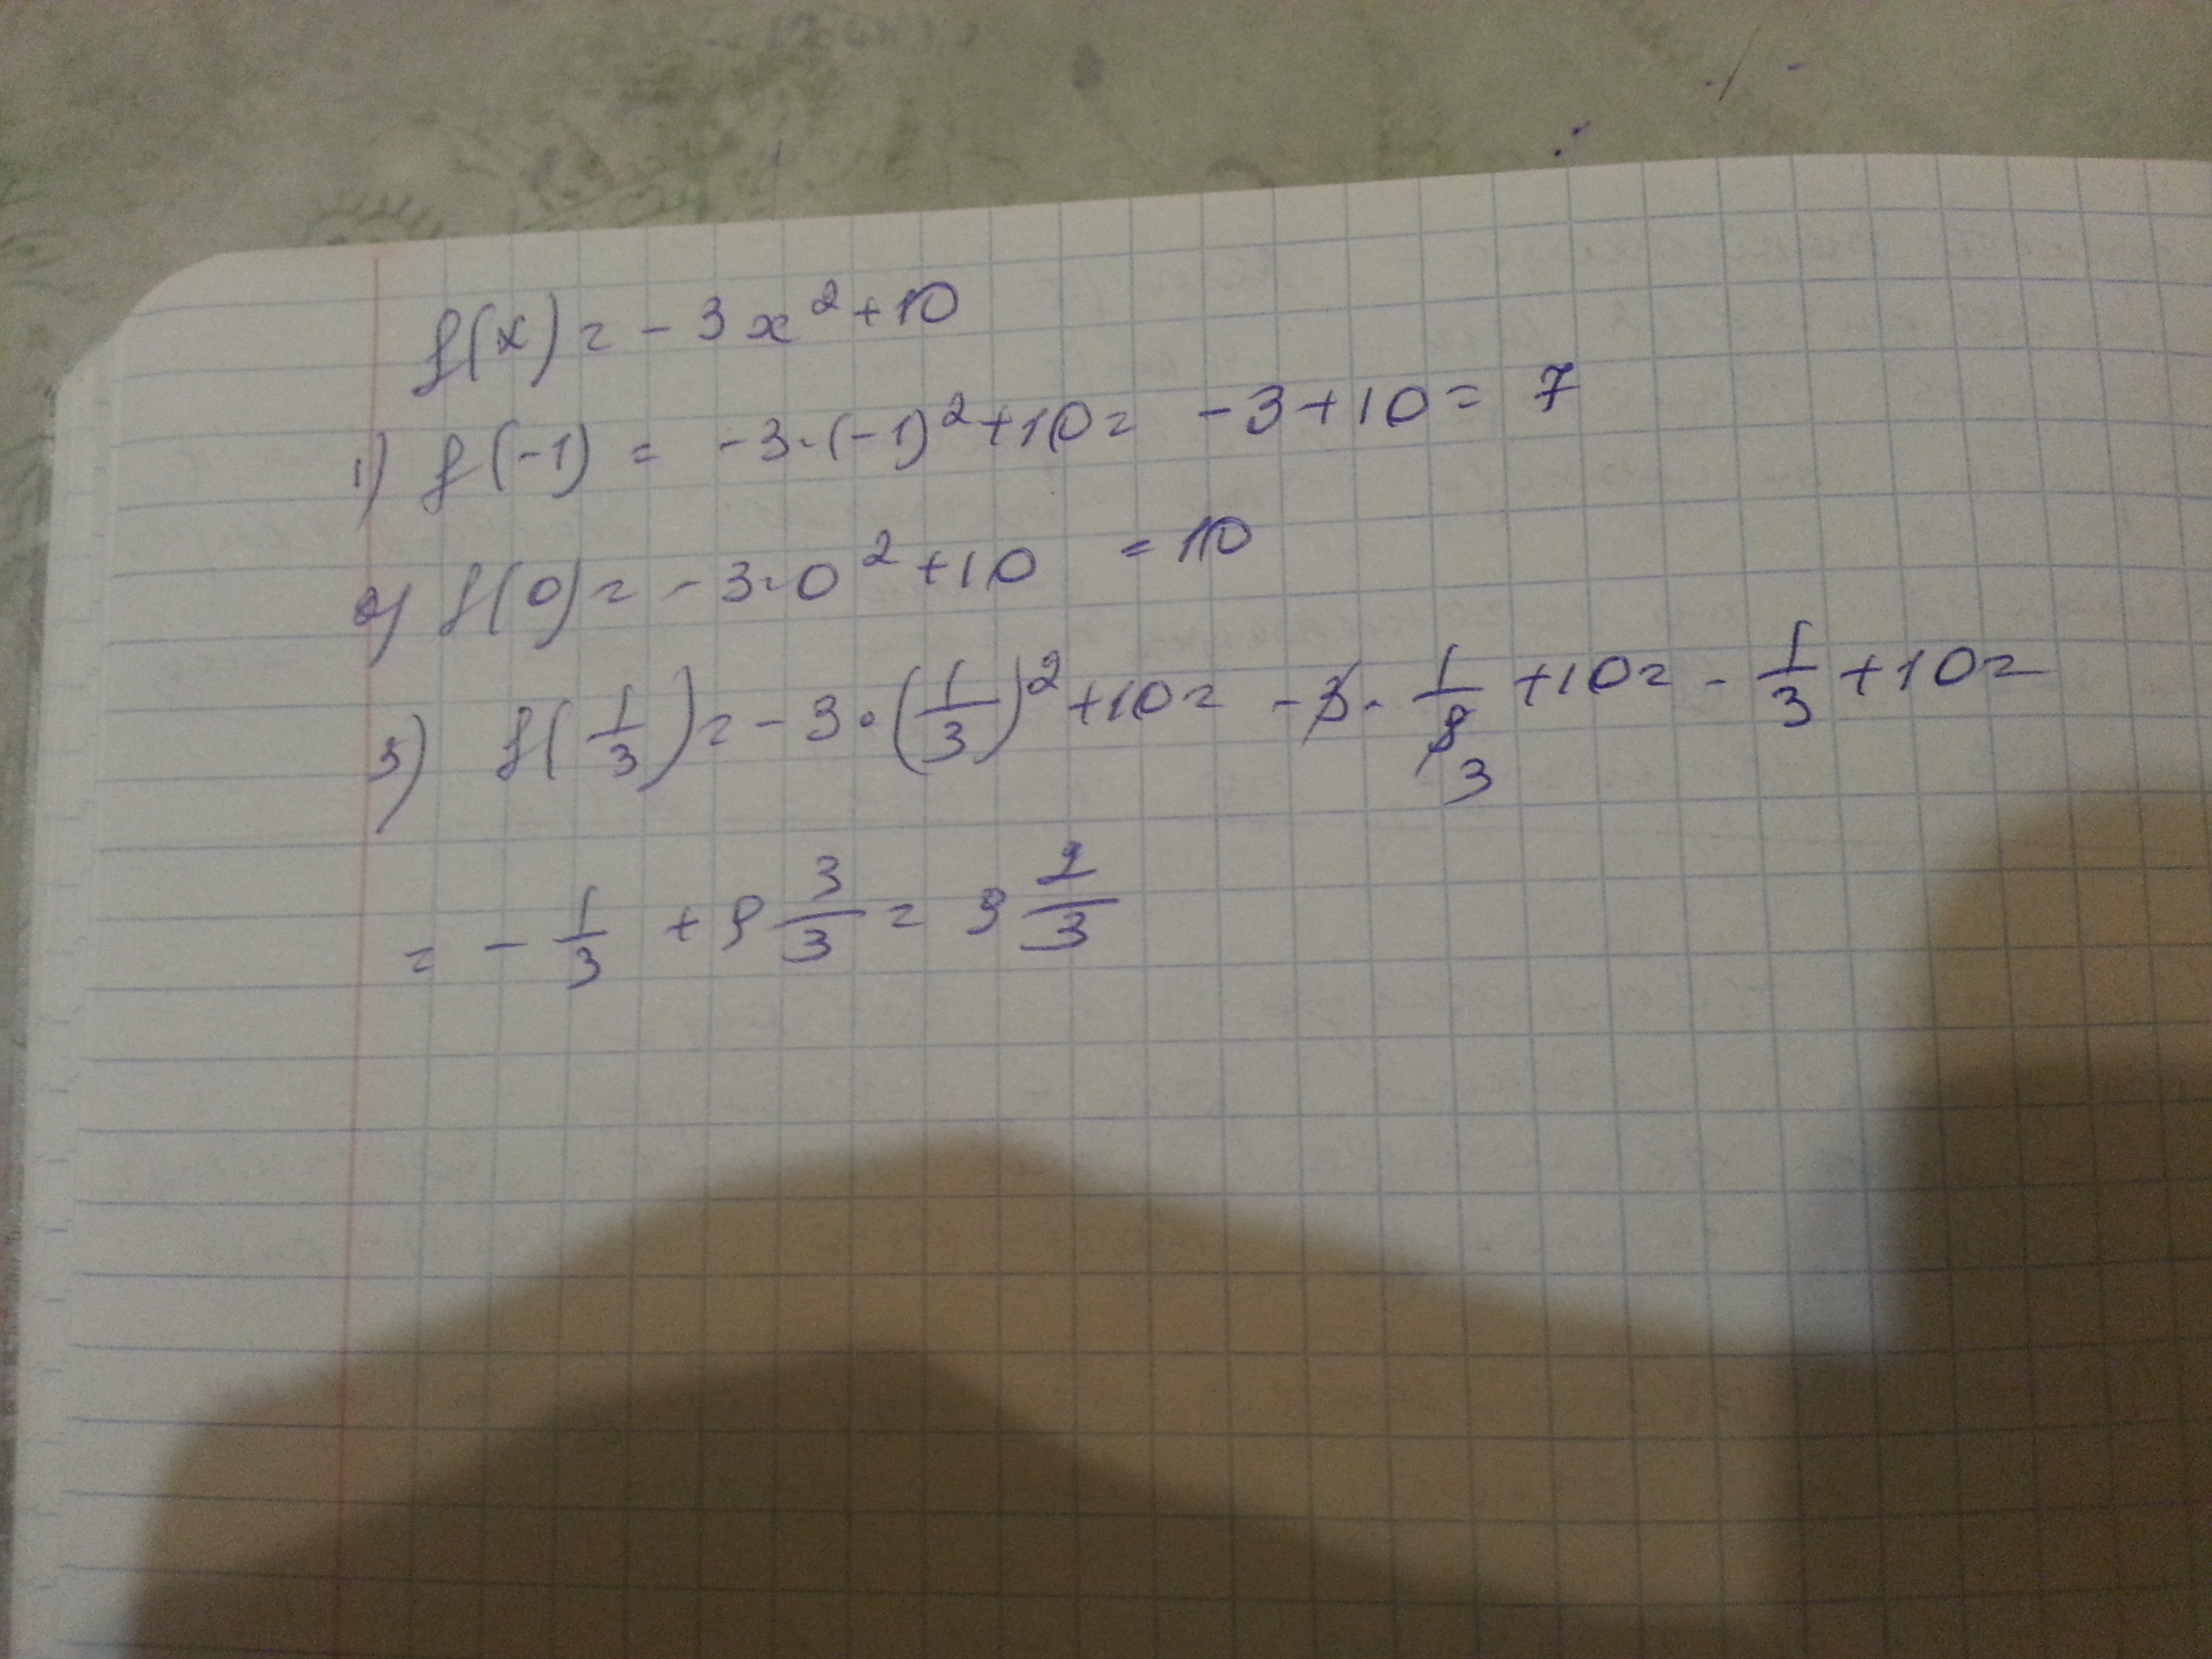 f(x) = -3x² + 10
1) f(-1) = -3·(-1)² + 10 = -3 + 10 = 7
2) f(0) = -3·0² + 10 = 10
3) f(1/3) = -3·(1/3)² + 10 = -3·1/9 + 10 = -1/3 + 10 =
3
= -1/3 + 9 3/3 = 9 2/3